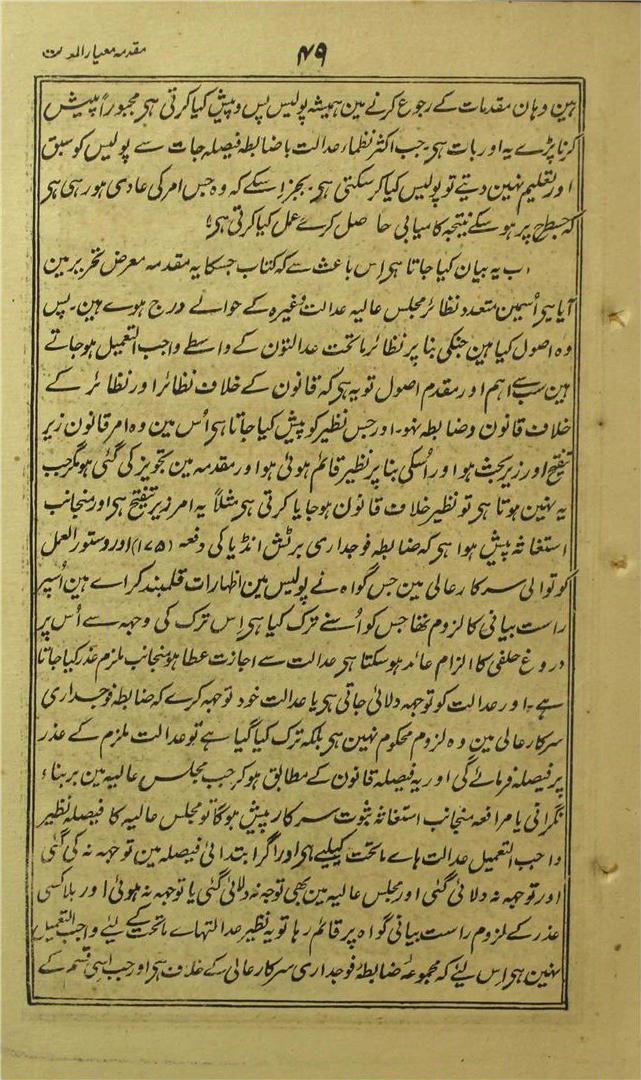 مقدمہ معیار الموت
۴۹
ہین وہان مقدمات کے رجوع کرنے مین ہمیشہ پولیس پس و پیش کیا کرتی ہی مجبوراً پیش
کرنا پڑے یہ اور بات ہی۔ جب اکثر نظماء عدالت باضابطہ فیصلہ جات سے پولیس کو سبق
اور تعلیم نہین دیتے تو پولیس کیا کر سکتی ہی۔ بجز اسکے کہ وہ جس امر کی عادی ہو رہی ہی
کہ جسطح پر ہو سکے نتیجہ کامیابی حاصل کرے عمل کیا کرتی ہی؛
اب یہ بیان کیا جاتا ہی اس باعث سے کہ کتاب جسکا یہ مقدمہ معرض تحریر مین
آیا ہی اُسمین متعدد نظائر مجلس عالیہ عدالت وغیرہ کے حوالے درج ہوے ہین۔ پس
وہ اصول کیا ہین جنکی بنا پر نظائر ماتحت عدالتون کے واسطے واجب التعمیل ہو جاتے
ہین سب سے اہم اور مقدم اصول تو یہ ہی کہ قانون کے خلاف نظائر اور نظائر کے
خلاف قانون و ضابطہ نہو۔ اور جس نظیر کو پیش کیا جاتا ہی اُس مین وہ امر قانون زیر
تنقیح اور زیر بحث ہو اور اُسکی بنا پر نظیر قائم ہوئی ہو اور مقدمہ مین تجویز کی گئی ہو مگر جب
یہ نہین ہوتا ہی تو نظیر خلاف قانون ہو جایا کرتی ہی مثلاً یہ امر زیر تنقیح ہی اور منجانب
استغاثہ پیش ہوا ہی کہ ضابطہ فوجداری برٹش انڈیا کی دفعہ (۱۷۵) اور دستور العمل
کوتوالی سرکار عالی مین جس گواہ نے پولیس مین اظہارات قلمبند کراے ہین اُسپر
راست بیانی کا لزوم تھا جس کو اُسنے ترک کیا ہی اس ترک کی وجہہ سے اُس پر
دروغ حلفی کا الزام عائد ہو سکتا ہی عدالت سے اجازت عطا ہو منجانب ملزم عذر کیا جاتا
ہے۔ اور عدالت کو توجہہ دلائی جاتی ہی یا عدالت خود توجہہ کرے کہ ضابطہ فوجداری
سرکار عالی مین وہ لزوم محکوم نہین ہی بلکہ ترک کیا گیا ہے تو عدالت ملزم کے عذر
پر فیصلہ فرمائے گی اور یہ فیصلہ قانون کے مطابق ہو کر جب مجلس عالیہ مین بربناء
نگرانی یا مرافعہ منجانب استغاثہ ثبوت سرکار پیش ہوگا تو مجلس عالیہ کا فیصلہ نظیر
واجب التعمیل عدالت ہاے ماتحت کیلیے ہی اور اگر ابتدائی فیصلہ مین توجہہ نہ کی گئی
اور توجہہ نہ دلائی گئی اور مجلس عالیہ مین بھی توجہ نہ دلائی گئی یا توجہہ نہ ہوئی اور بلا کسی
عذر کے ملزوم راست بیانی گواہ پر قائم رہا تو یہ نظیر عدالتہاے ماتحت کے لئے واجب التعمیل
نہین ہی اس لیئے کہ مجموعۂ ضابطۂ فوجداری سرکار عالی کے خلاف ہی اور جب اسی قسم کے